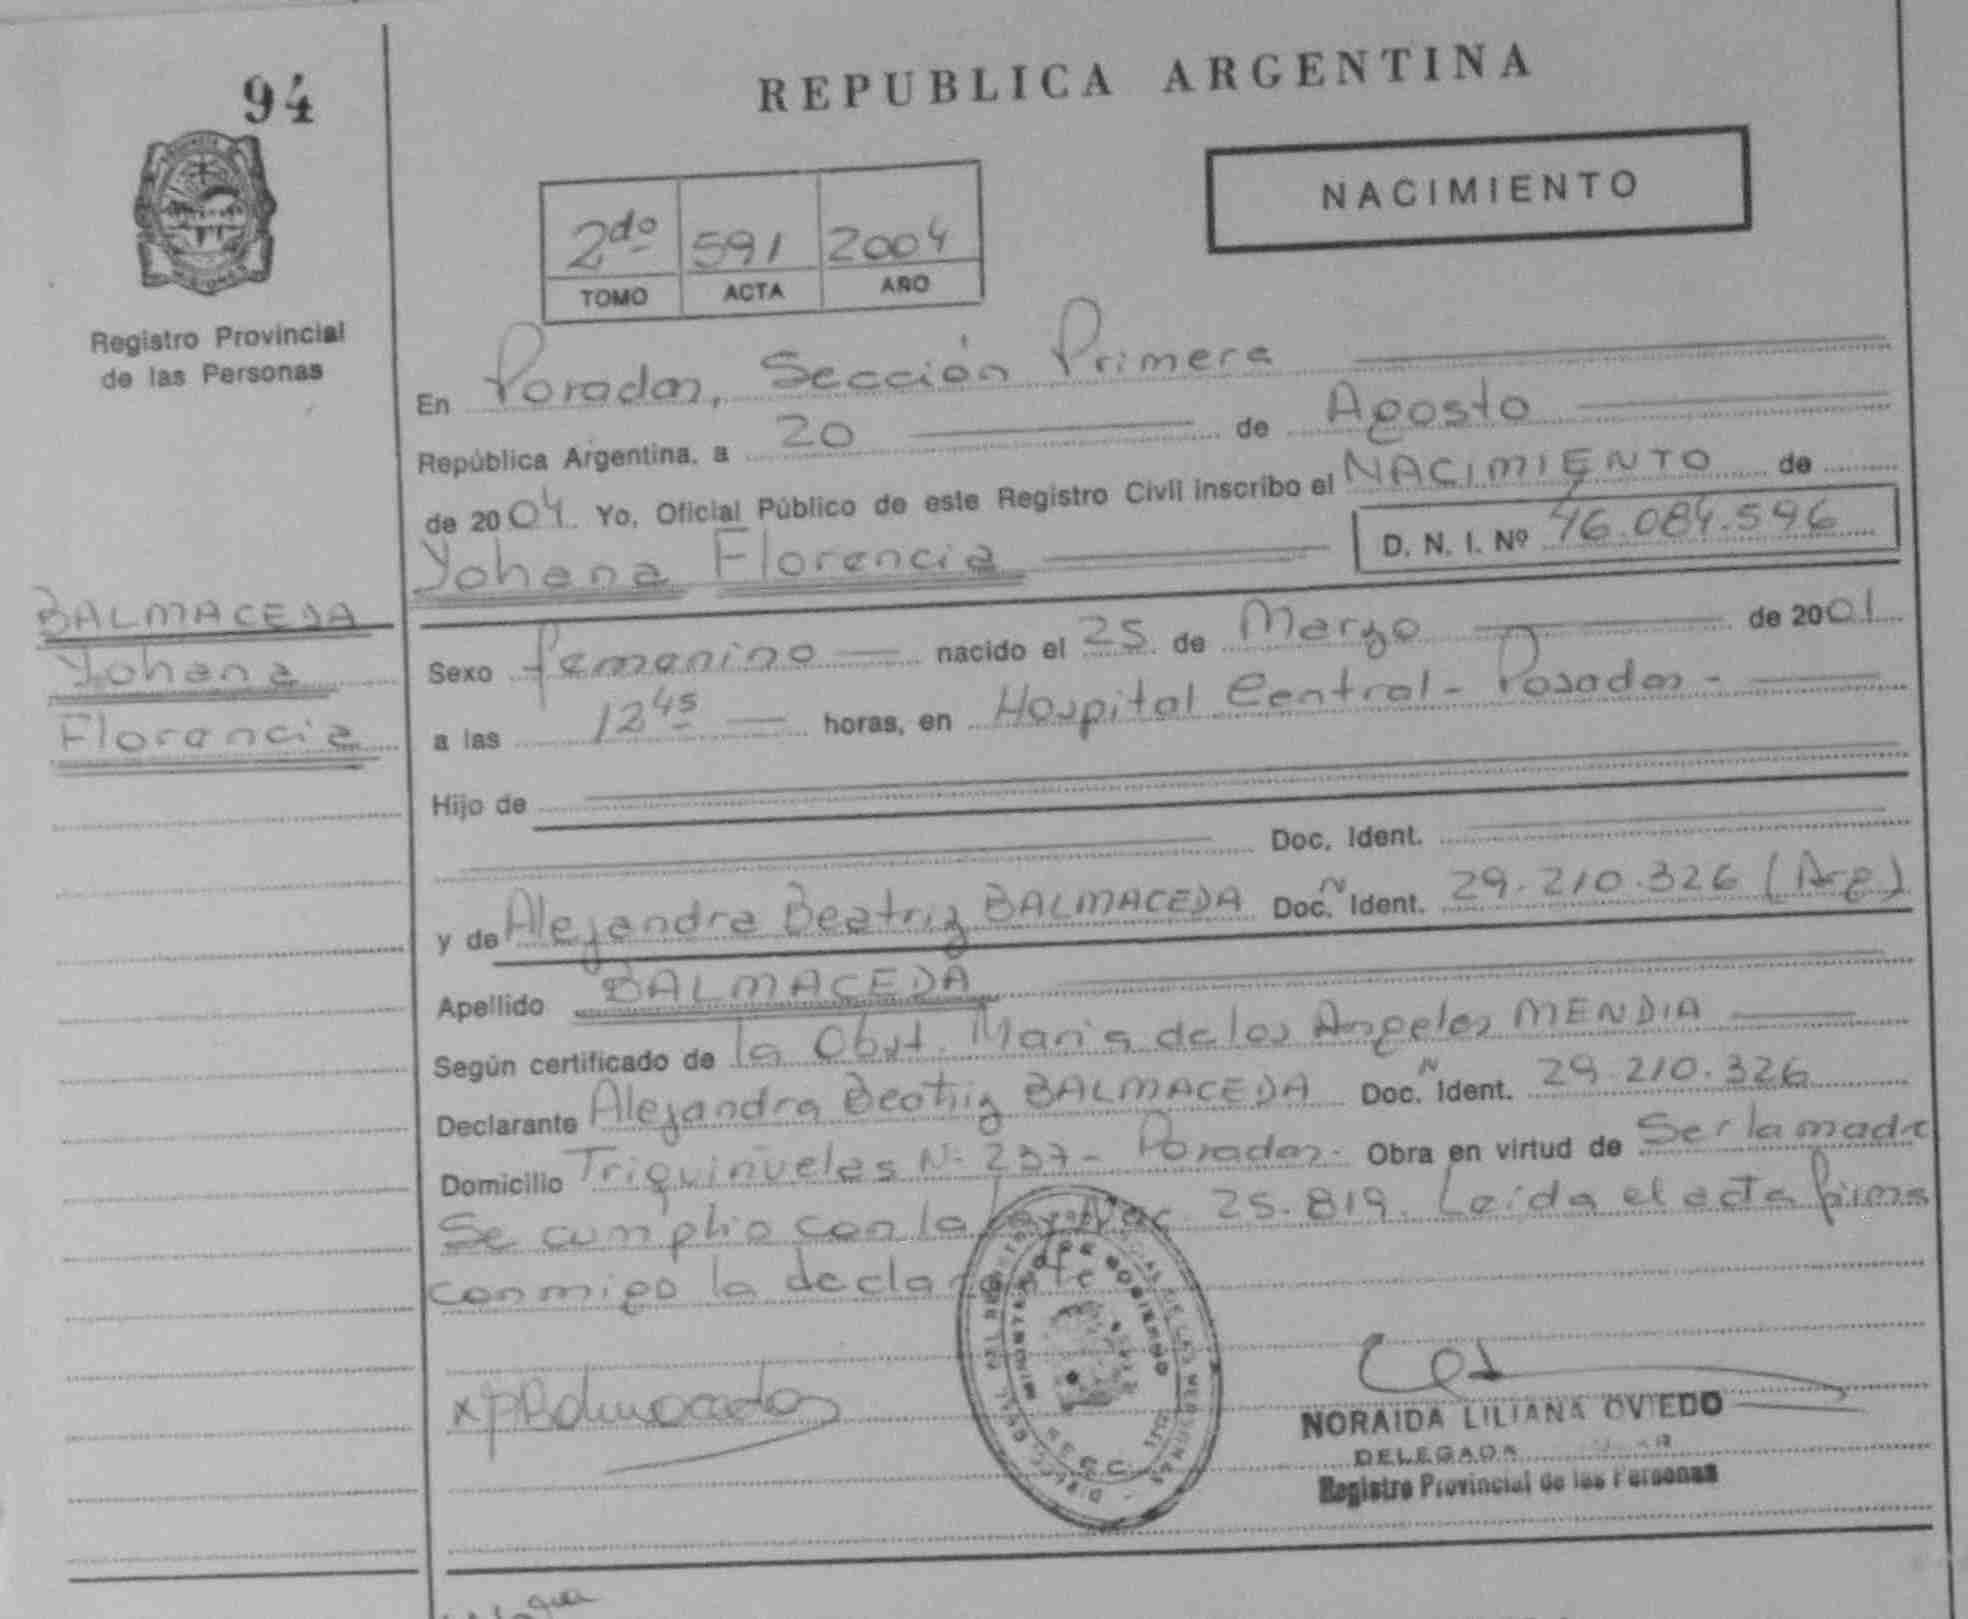 94
REPUBLICA ARGENTINA
NACIMIENTO
2do 591 2004
TOMO ACTA AÑO
Registro Provincial
de las Personas
En Posadas, Sección Primera
República Argentina, a 20 de Agosto
de 2004. Yo, Oficial Público de este Registro Civil inscribo el NACIMIENTO de
Yohana Florencia D. N. I. Nº 46.084.596
BALMACEDA
Yohana
Florencia
Sexo femenino nacido el 25 de Marzo de 2001
a las 12 45 horas, en Hospital Central - Posadas -
Hijo de
Doc. Ident.
y de Alejandra Beatriz BALMACEDA Doc. N Ident. 29.210.326 (Arg)
Apellido BALMACEDA
Según certificado de la Obst. Maria de los Angeles MENDIA
Declarante Alejandra Beatriz BALMACEDA Doc. N Ident. 29.210.326
Domicilio Triquiñuelas Nº 237 - Posadas - Obra en virtud de Ser la madre
Se cumplio con la Ley Nac. 25.819. Leida el acta firma
conmigo la declarante
NORAIDA LILIANA OVIEDO
DELEGADA
Registro Provincial de las Personas